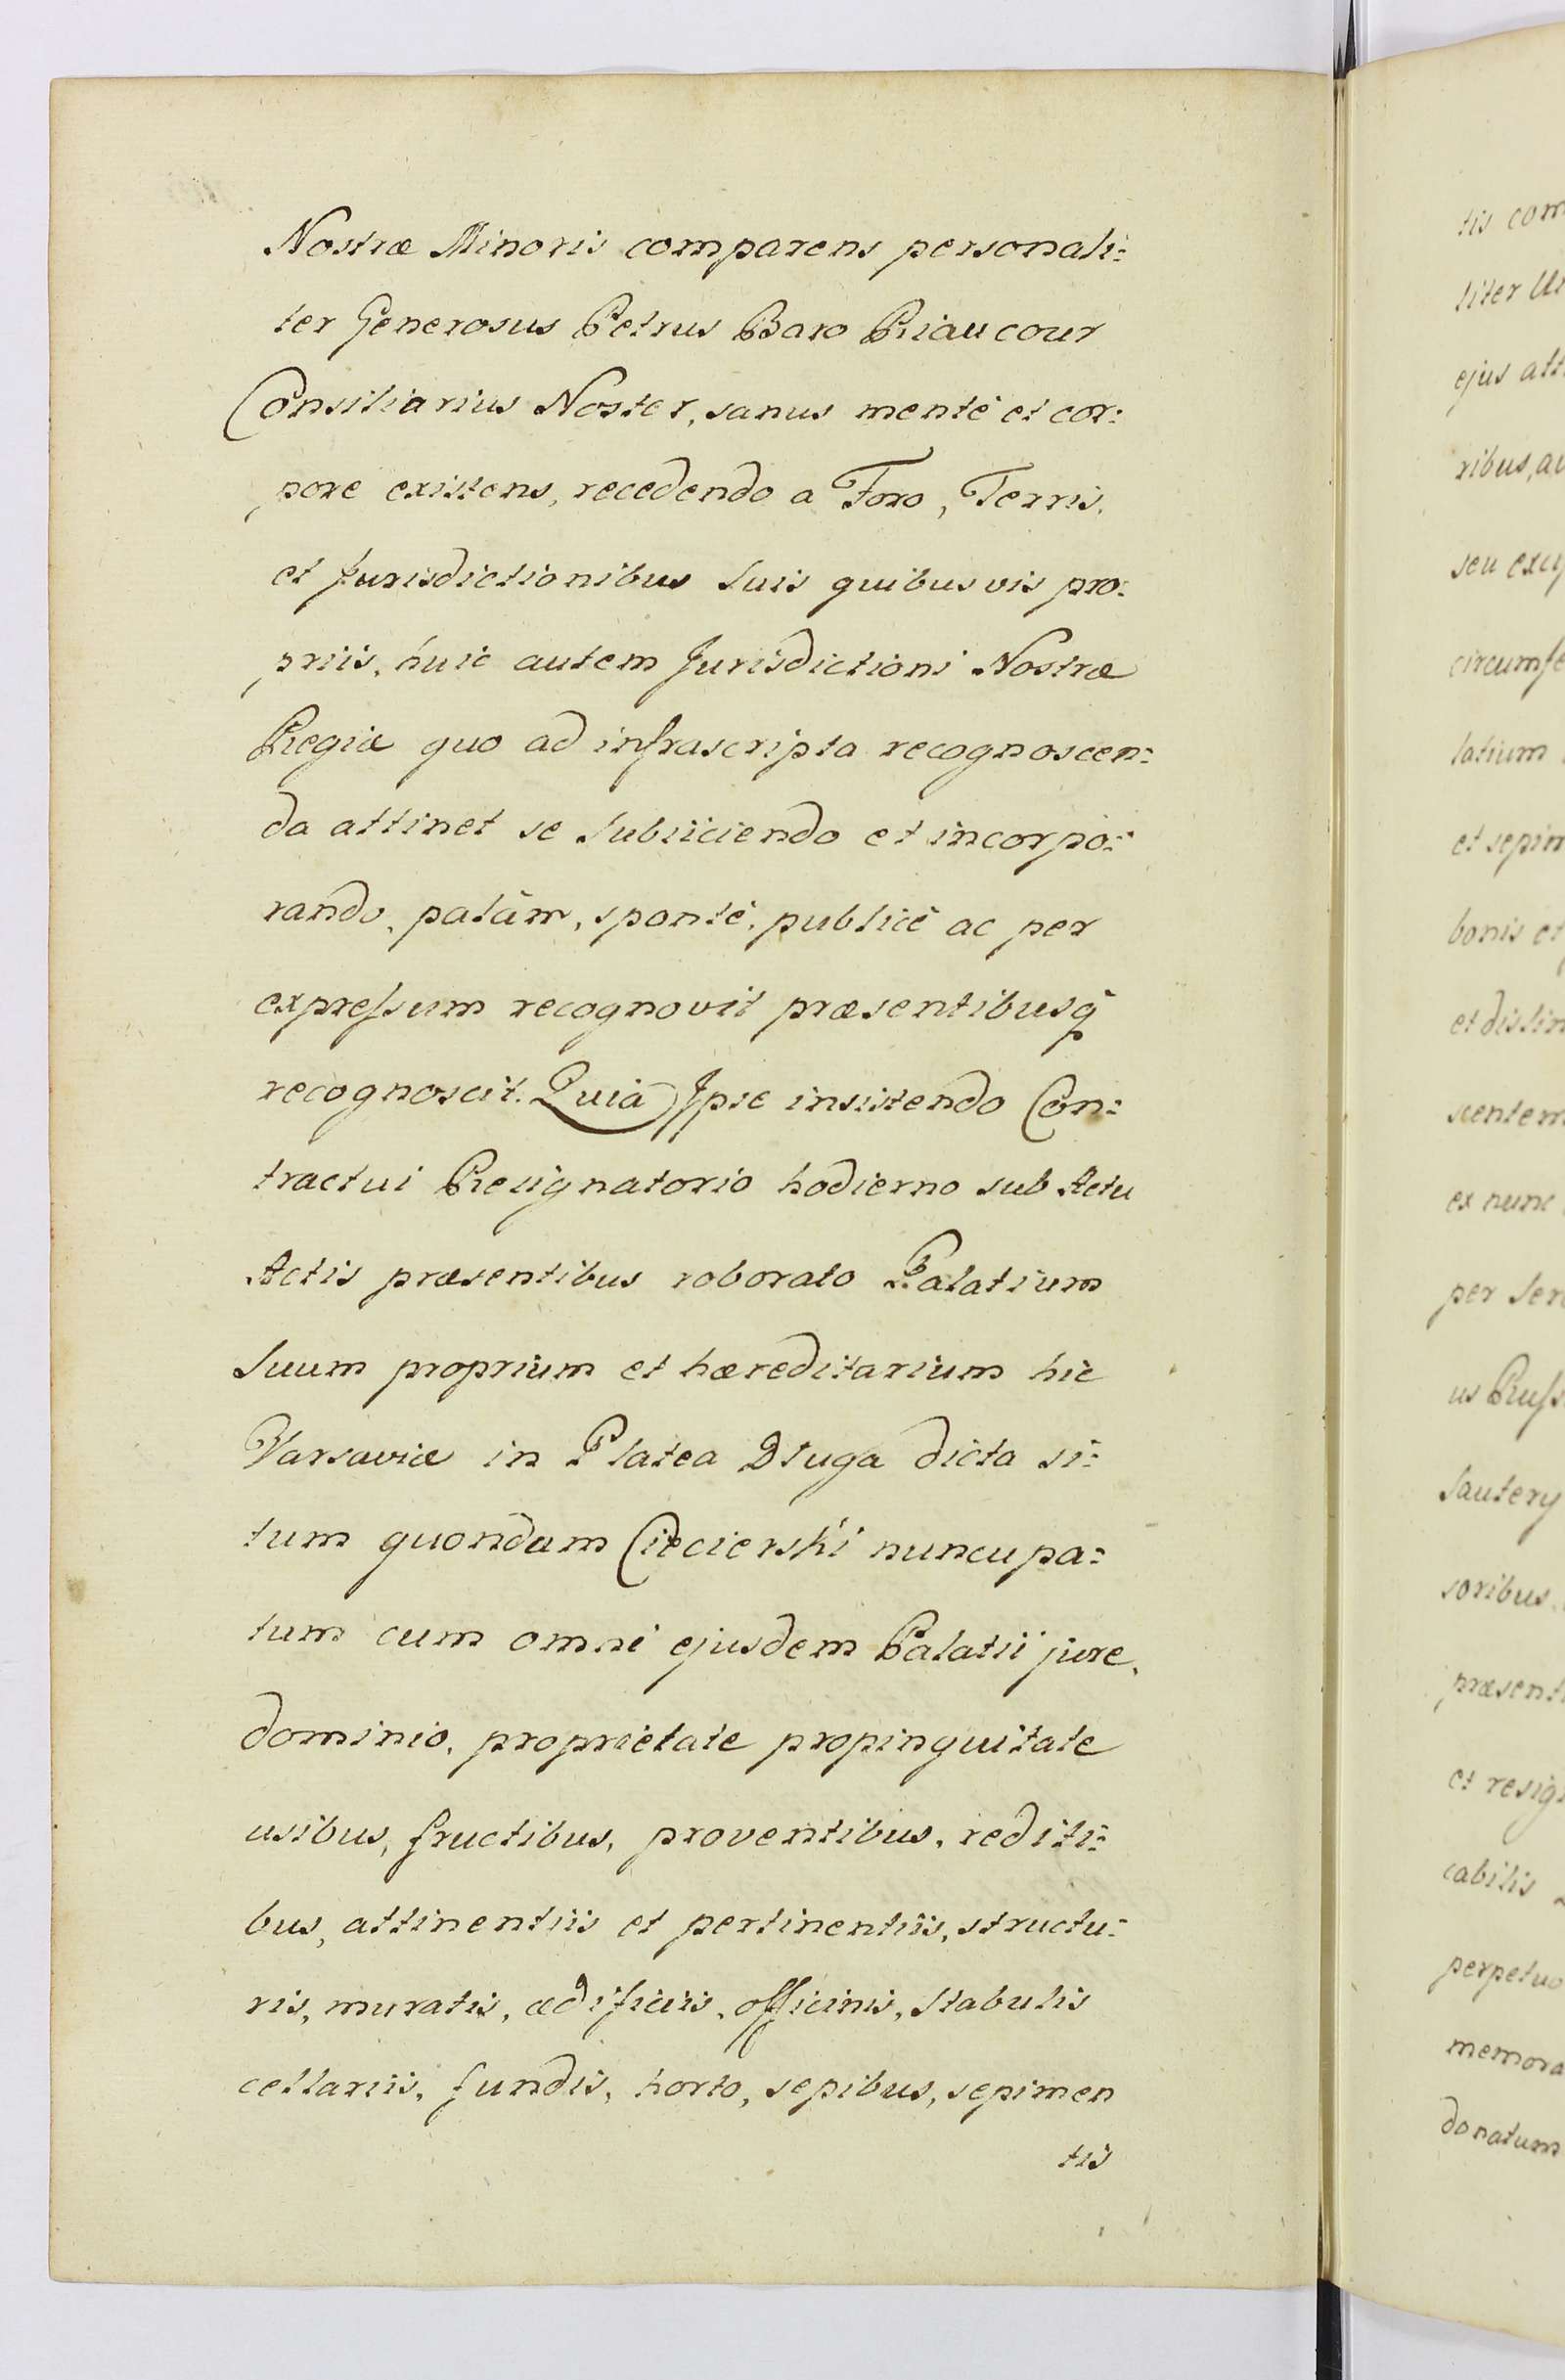 Nostræ Minoris comparens personali:
ter Generosus Petrus Baro Riaucour
Consiliarius Noster, sanus mentè et cor:
pore existens, recedendo a Foro, Terris,
et Jurisdictionibus suis quibusvis pro:
priis, huic autem Jurisdictioni Nostræ
Regiæ quo ad infrascripta recognoscen:
da attinet se subiiciendo et incorpo:
rando, palàm, spontè, publicè ac per
expressum recognovit præsentibusq̃
recognoscit. Quia Ipse insistendo Con:
tractui Resignatorio hodierno sub Actu
Actis præsentibus roborato Palatium
suum proprium et hæreditarium hic
Varsaviæ in Platea Długa dicta si:
tum quondam Ciecierski nuncupa:
tum cum omni ejusdem Palatii jure,
dominio, proprietate propinquitate
usibus, fructibus, proventibus, rediti:
bus, attinentiis et pertinentiis, structu:
ris, muratis, ædificiis, officinis, stabulis
cellariis, fundis, horto, sepibus, sepimen
tis
tis com
liter
ejus att
ribus,
seu
circumfe
latium
et sepim
bonis et
et distin
scentem
ex nunc
per Ser
us Russ
Sautery
soribus
præsent
et resig
cabilis
perpetuo
memora
donatum